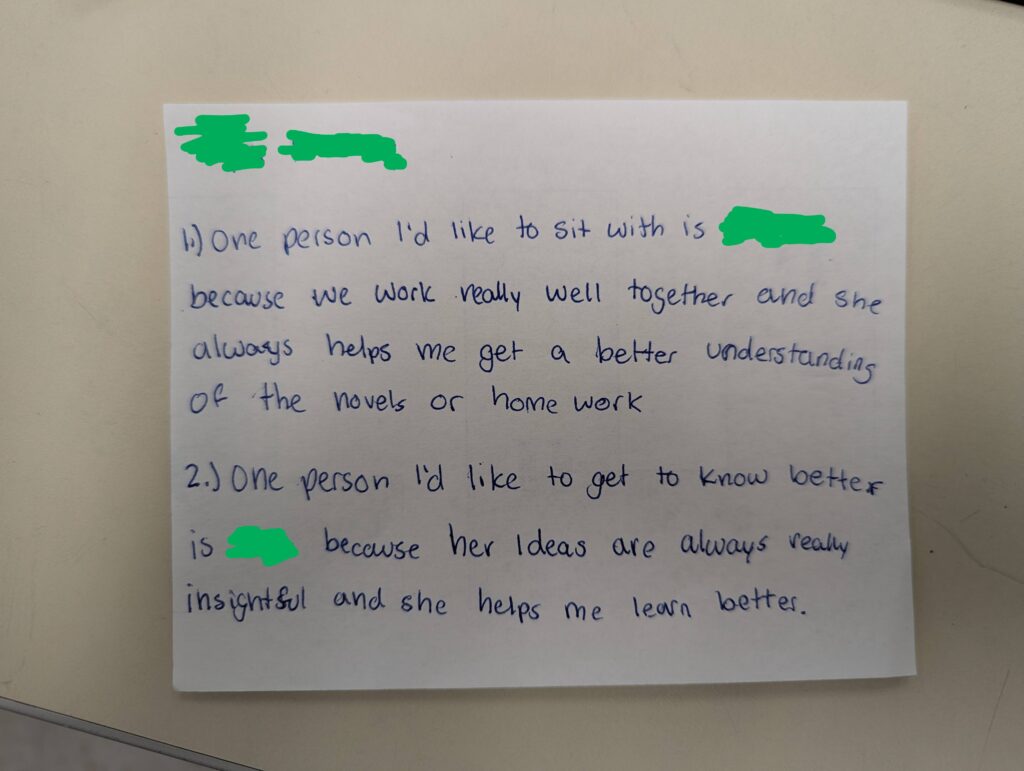 1.) One person I'd like to sit with is
because we work really well together and she
always helps me get a better understanding
of the novels or home work
2.) One person I'd like to get to know better
is because her Ideas are always really
insightful and she helps me learn better.